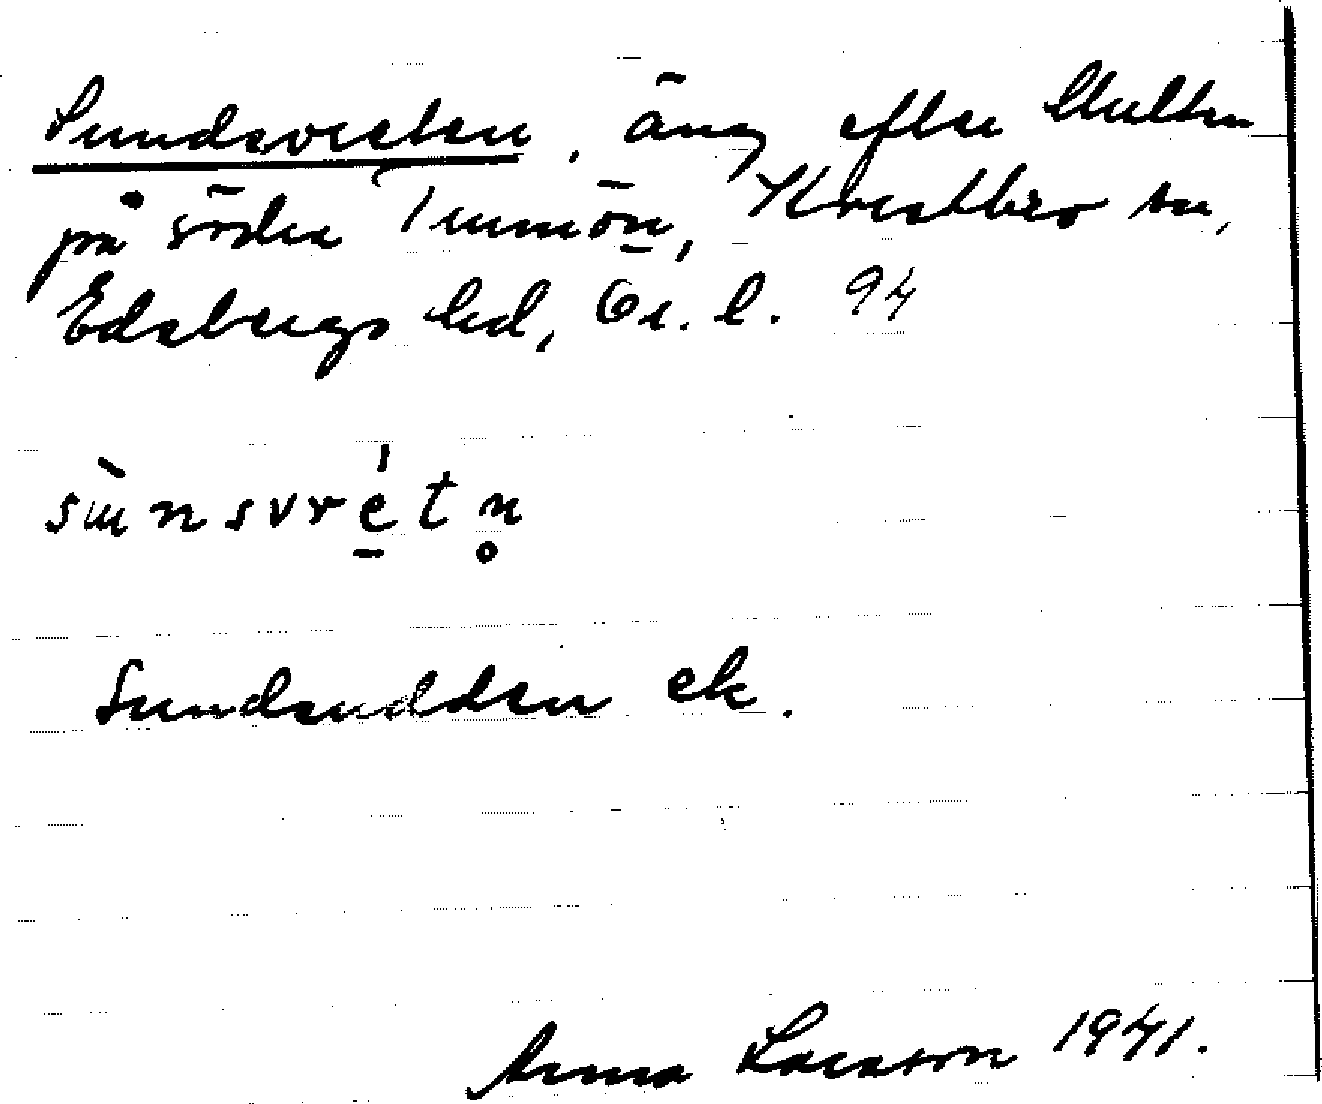 Sundsvreten, äng efter Multen
på södra Tunnön, Kvistbro sn,
Edsbergs hd, Ör. l. 94
sɯ̀nsvrétn̥
Sundsudden ek.
Anna Larsson 1941.